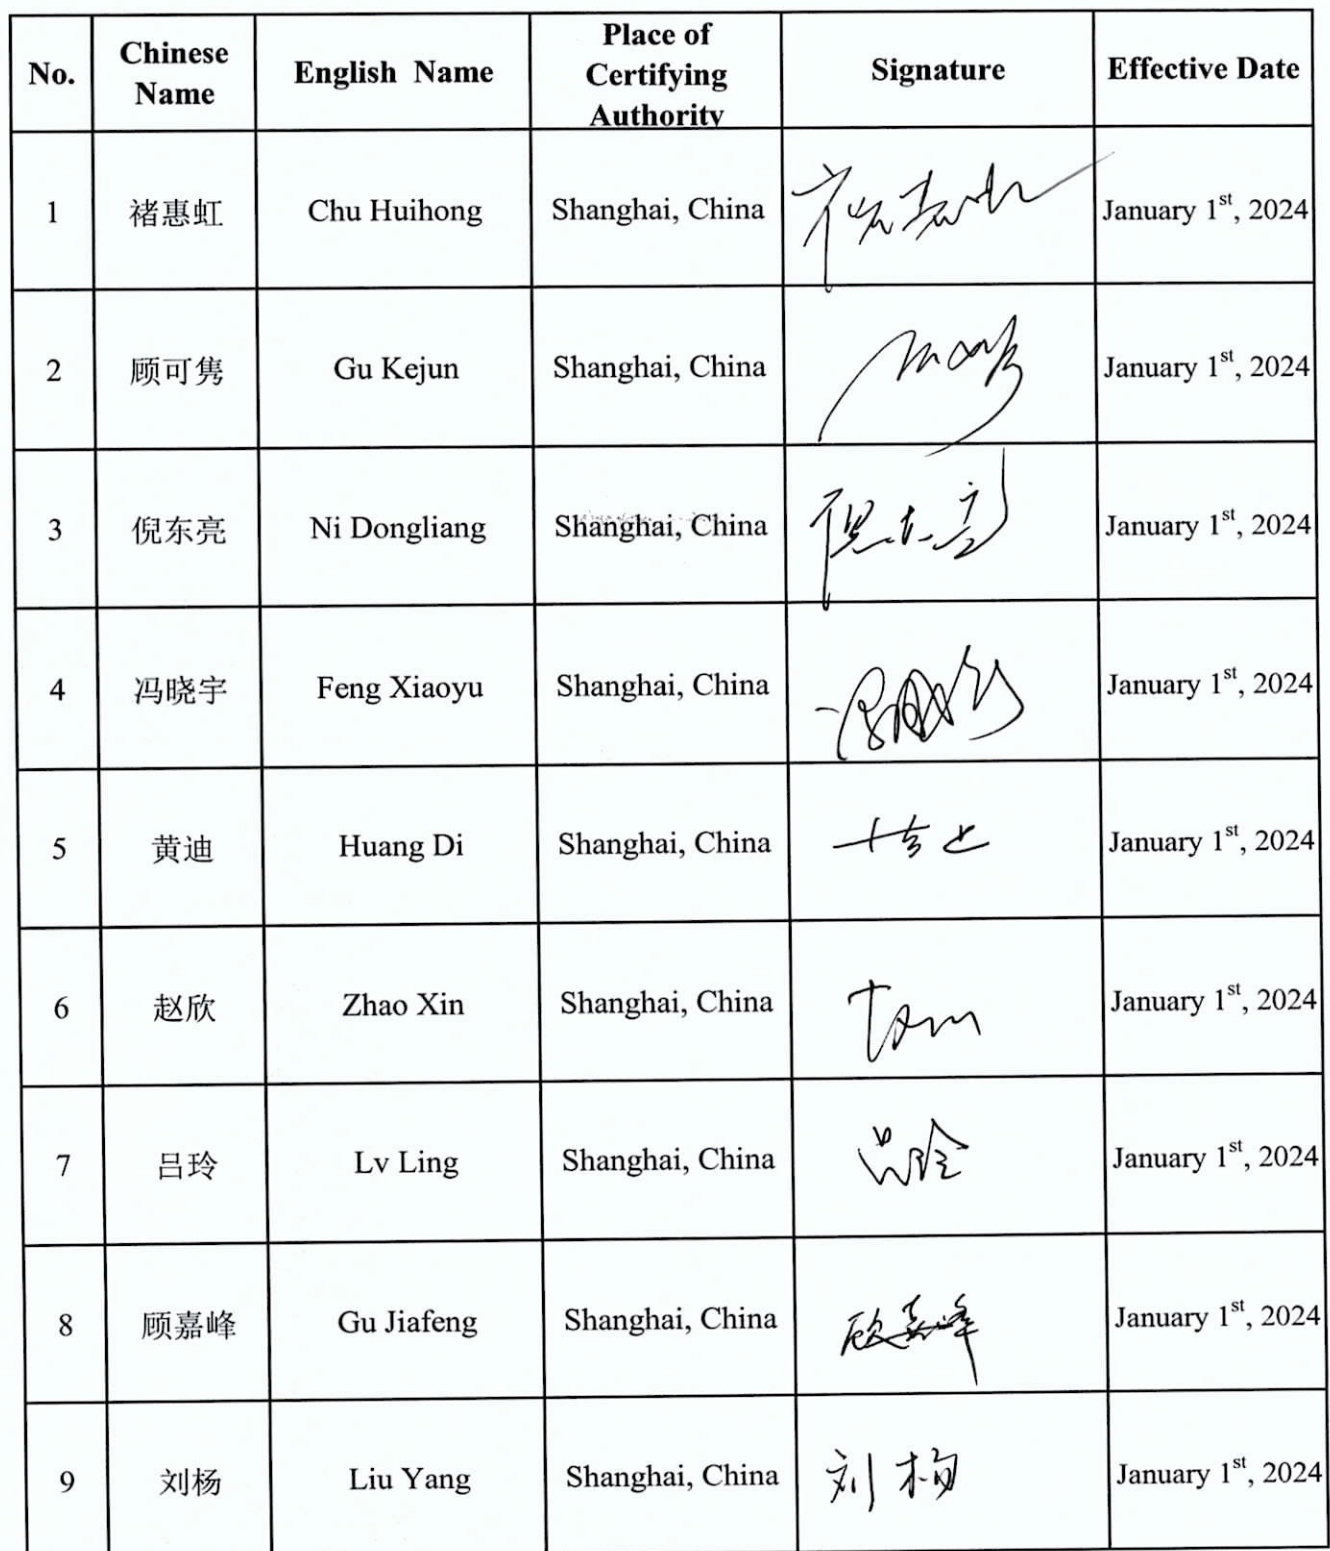 No. Chinese Name English Name Place of Certifying Authority Signature Effective Date
1 褚惠虹 Chu Huihong Shanghai, China January 1st, 2024
2 顾可隽 Gu Kejun Shanghai, China January 1st, 2024
3 倪东亮 Ni Dongliang Shanghai, China 倪东亮 January 1st, 2024
4 冯晓宇 Feng Xiaoyu Shanghai, China January 1st, 2024
5 黄迪 Huang Di Shanghai, China January 1st, 2024
6 赵欣 Zhao Xin Shanghai, China January 1st, 2024
7 吕玲 Lv Ling Shanghai, China 吕玲 January 1st, 2024
8 顾嘉峰 Gu Jiafeng Shanghai, China 顾嘉峰 January 1st, 2024
9 刘杨 Liu Yang Shanghai, China 刘杨 January 1st, 2024